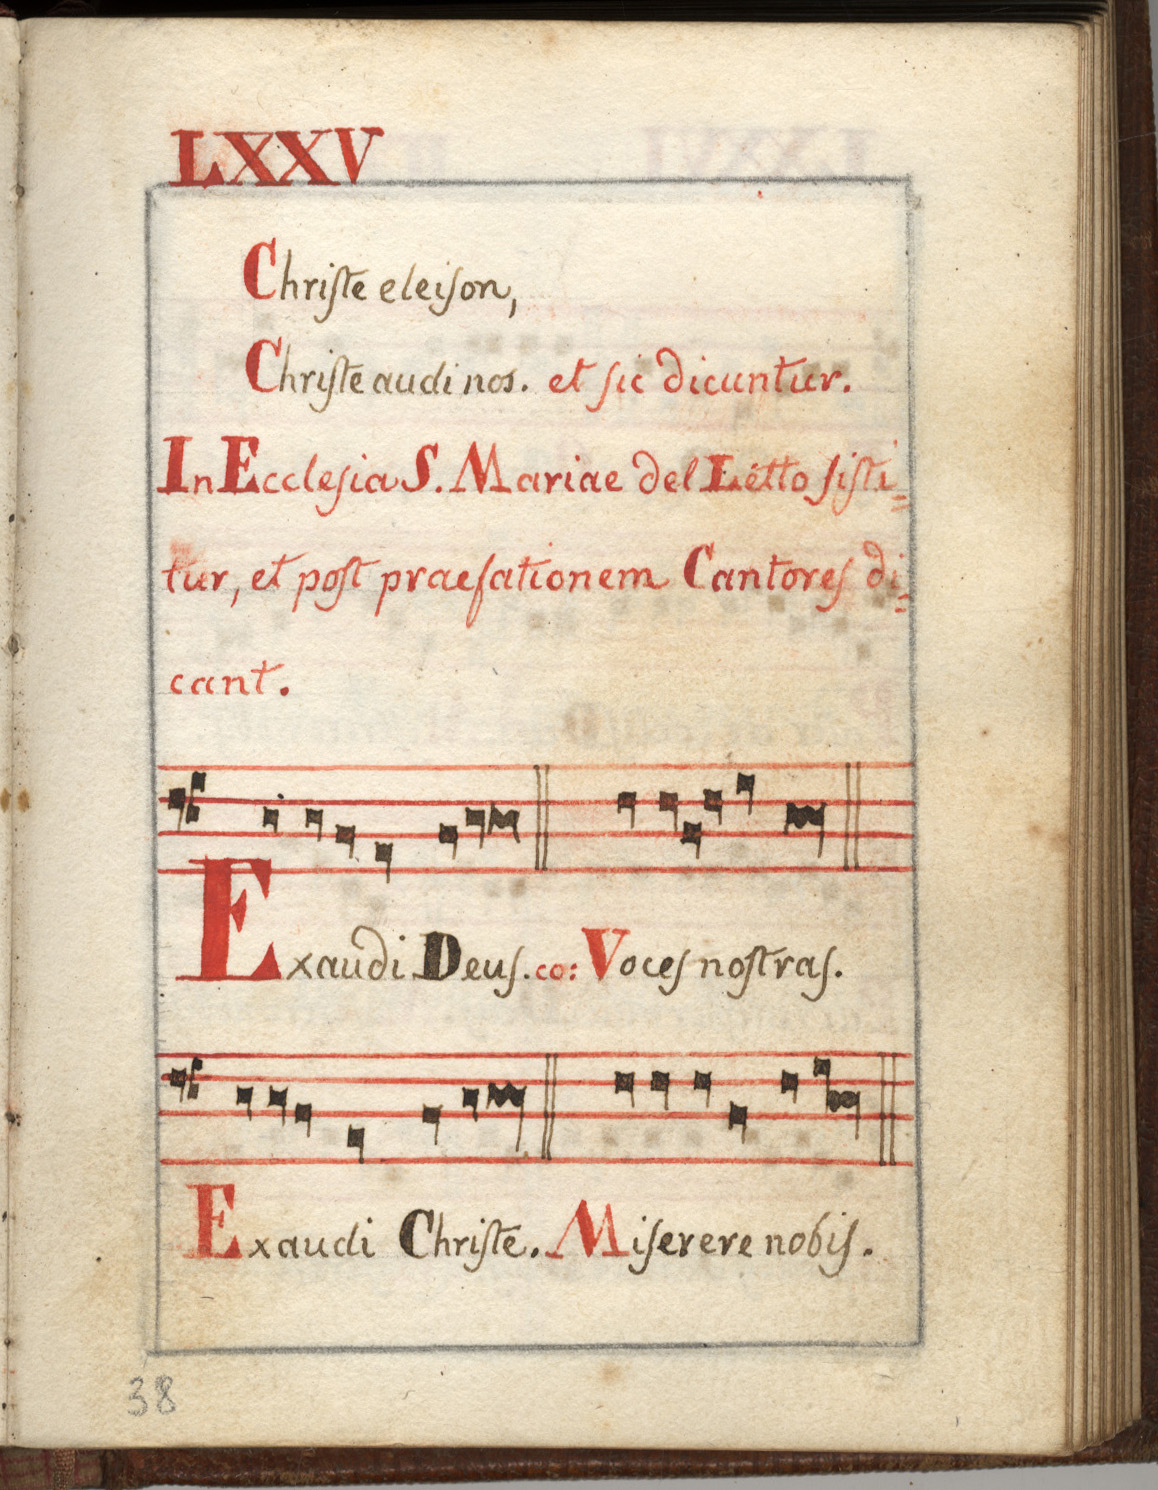 LXXV
Chriſte eleiſon,
Chriſte audi nos. et ſic dicuntur.
In Eccleſia S. Mariae del Letto ſiſti=
tur, et poſt praefationem Cantoreſ di=
cant.
Exaudi Deuſ. co: Voceſ noſtraſ.
Exaudi Chriſte. Miſerere nobiſ.
38